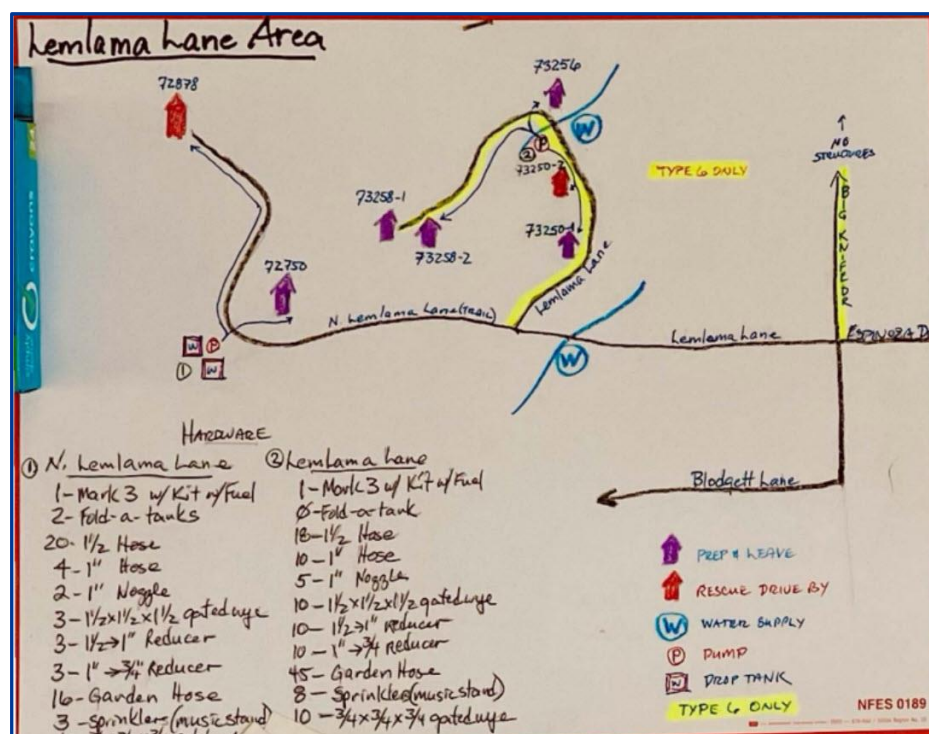 Lemlama Lane Area
72878
73256
W
2 P
73250-2
TYPE 6 ONLY
NO
STRUCTURES
BIG KNIFE DR
73258-1
73258-2
73250-1
72750
Lemlama Lane
N. Lemlama Lane (TRAIL)
Lemlama Lane
ESPINOZA D
W P
1 W
W
crayons
Blodgett Lane
HARDWARE
① N. Lemlama Lane
1-Mark 3 w/ Kit w/Fuel
2-Fold-a-tanks
20-1½ Hose
4-1" Hose
2-1" Nozzle
3-1½x1½x1½ gatedwye
3-1½→1" Reducer
3-1"→¾" Reducer
16-Garden Hose
3-Sprinklers (music stand)
② Lemlama Lane
1-Mark 3 w/ Kit w/Fuel
0-Fold-a-tank
18-1½ Hose
10-1" Hose
5-1" Nozzle
10-1½x1½x1½ gatedwye
10-1½→1" reducer
10-1"→¾ Reducer
45-Garden Hose
8-Sprinklers (music stand)
10-¾x¾x¾ gatedwye
PREP & LEAVE
RESCUE DRIVE BY
W WATER SUPPLY
P PUMP
W DROP TANK
TYPE 6 ONLY
NFES 0189